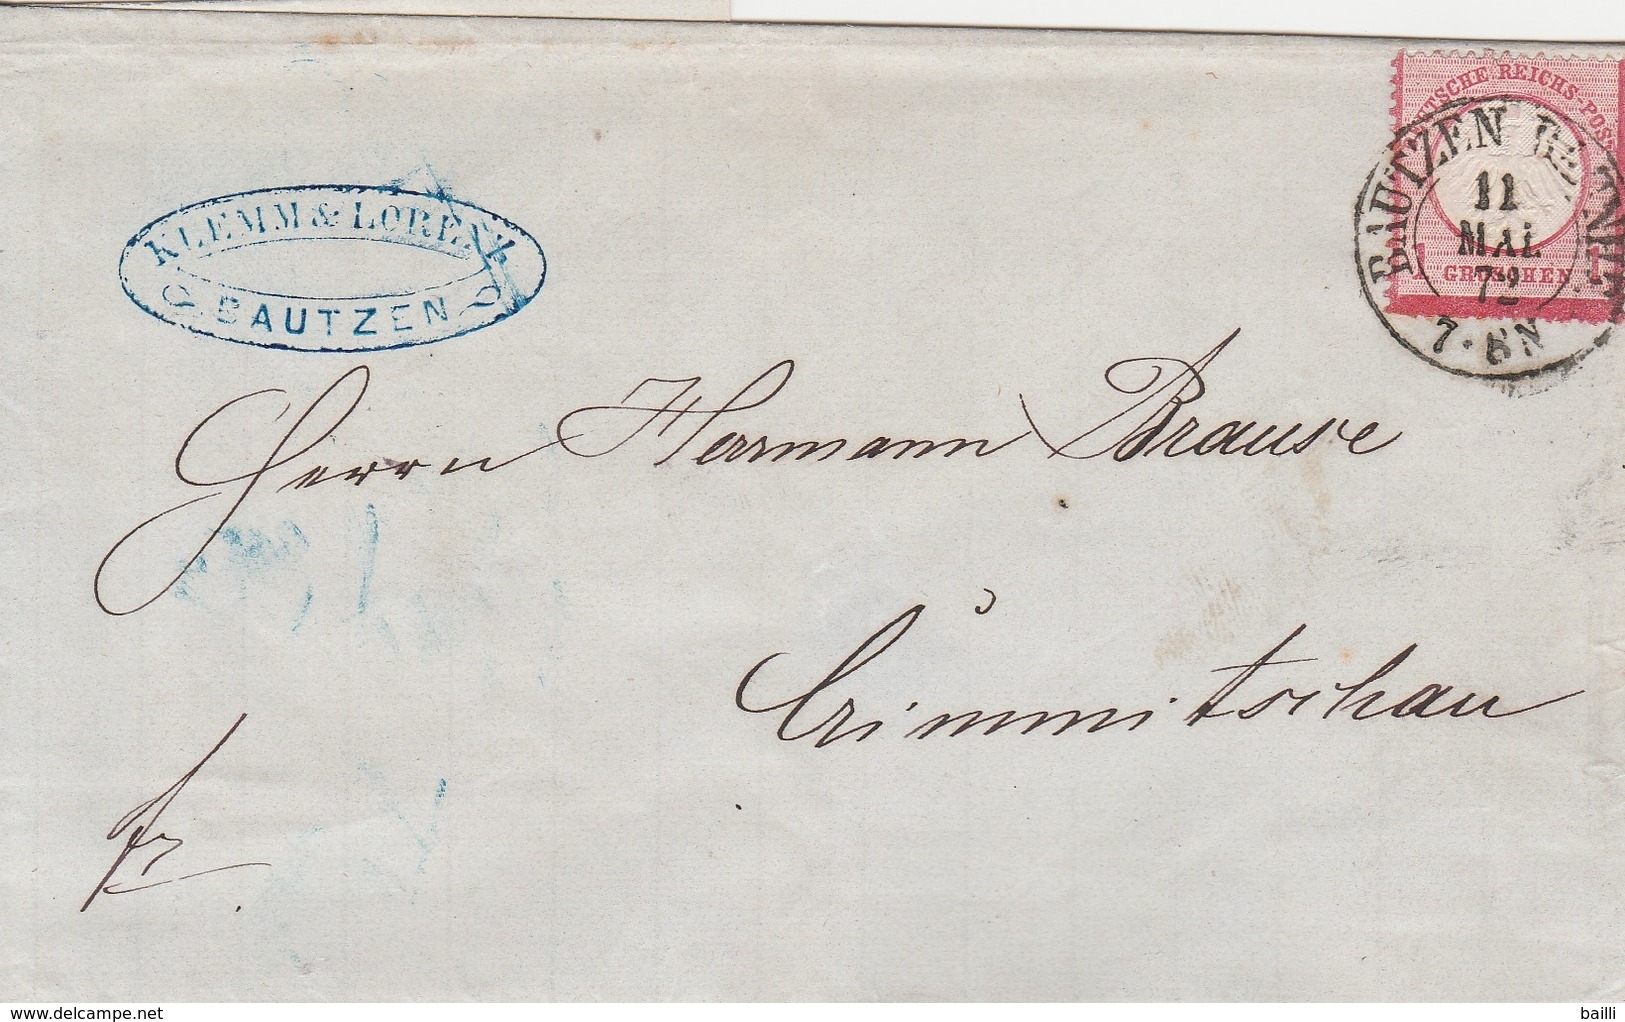 KLEMM & LORENZ
BAUTZEN
DEUTSCHE REICHS-POST
1 GROSCHEN 1
BAUTZEN
11
MAI
72
7-8N
Herrn Herrmann Brause
Crimmitschau
fr
delcampe.net
bailli